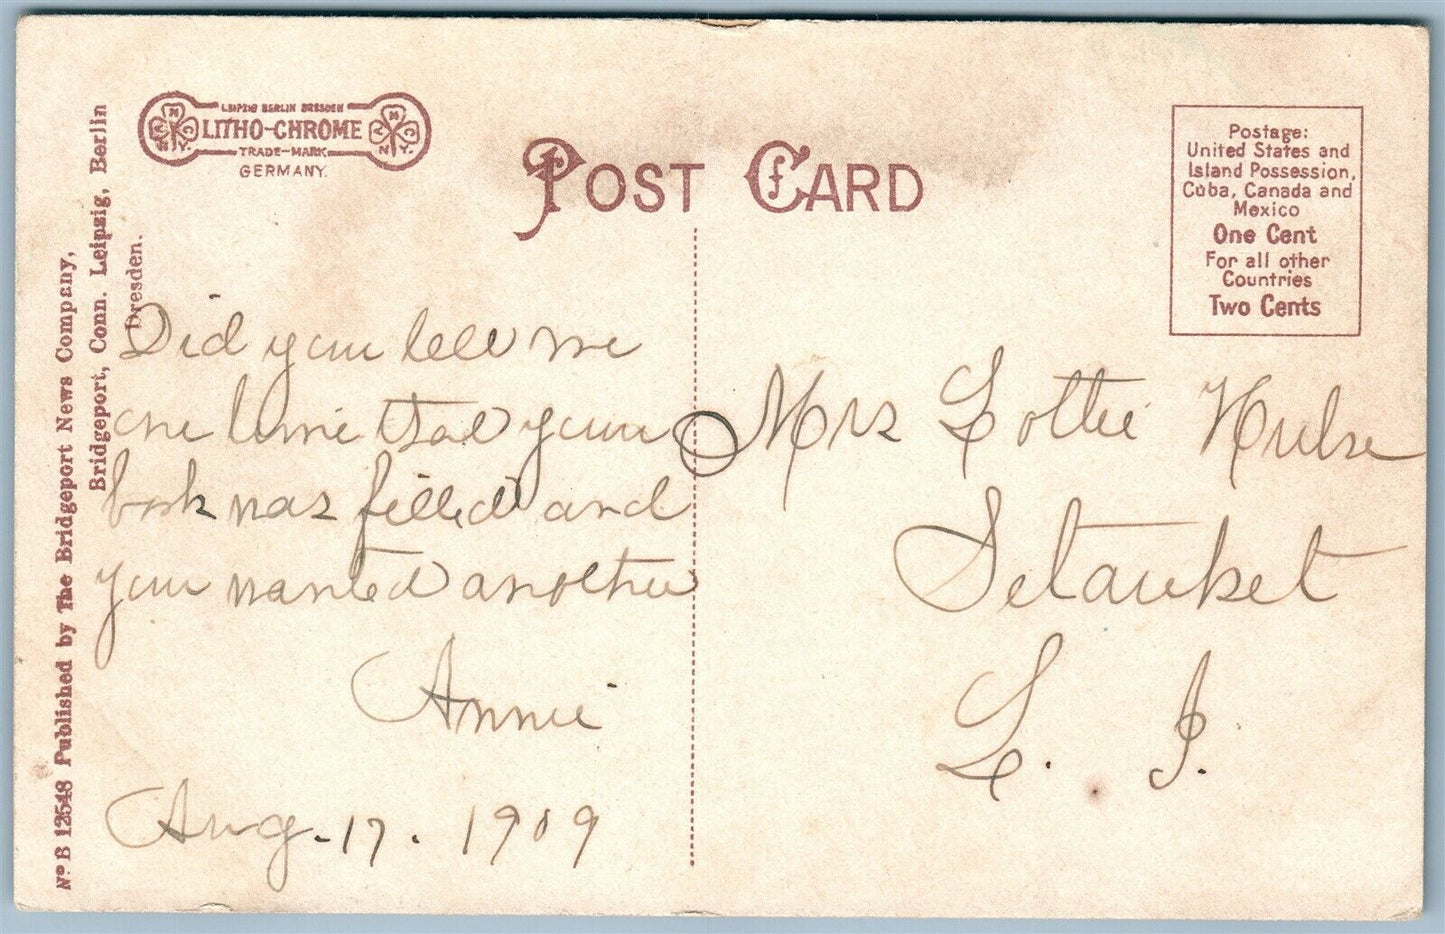 LEIPZIG BERLIN DRESDEN
LITHO-CHROME
TRADE-MARK
GERMANY.
N Y C N.Y.
N Y C N.Y.
POST CARD
Postage:
United States and
Island Possession,
Cuba, Canada and
Mexico
One Cent
For all other
Countries
Two Cents
Nº B 12548 Published by The Bridgeport News Company,
Bridgeport, Conn. Leipzig, Berlin
Dresden.
Did you tell me
one time that your
book was filled and
you wanted another
Annie
Aug - 17. 1909
Mrs Lottie Hulse
Setauket
L. I.